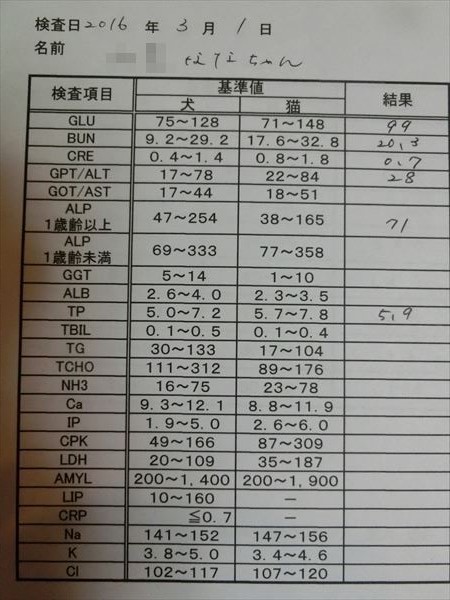 検査日2016 年 3 月 1 日
名前 ななちゃん
検査項目 基準値 結果
犬 猫
GLU 75～128 71～148 99
BUN 9.2～29.2 17.6～32.8 20.3
CRE 0.4～1.4 0.8～1.8 0.7
GPT/ALT 17～78 22～84 28
GOT/AST 17～44 18～51
ALP
1歳齢以上 47～254 38～165 71
ALP
1歳齢未満 69～333 77～358
GGT 5～14 1～10
ALB 2.6～4.0 2.3～3.5
TP 5.0～7.2 5.7～7.8 5.9
TBIL 0.1～0.5 0.1～0.4
TG 30～133 17～104
TCHO 111～312 89～176
NH3 16～75 23～78
Ca 9.3～12.1 8.8～11.9
IP 1.9～5.0 2.6～6.0
CPK 49～166 87～309
LDH 20～109 35～187
AMYL 200～1,400 200～1,900
LIP 10～160 －
CRP ≦0.7 －
Na 141～152 147～156
K 3.8～5.0 3.4～4.6
Cl 102～117 107～120